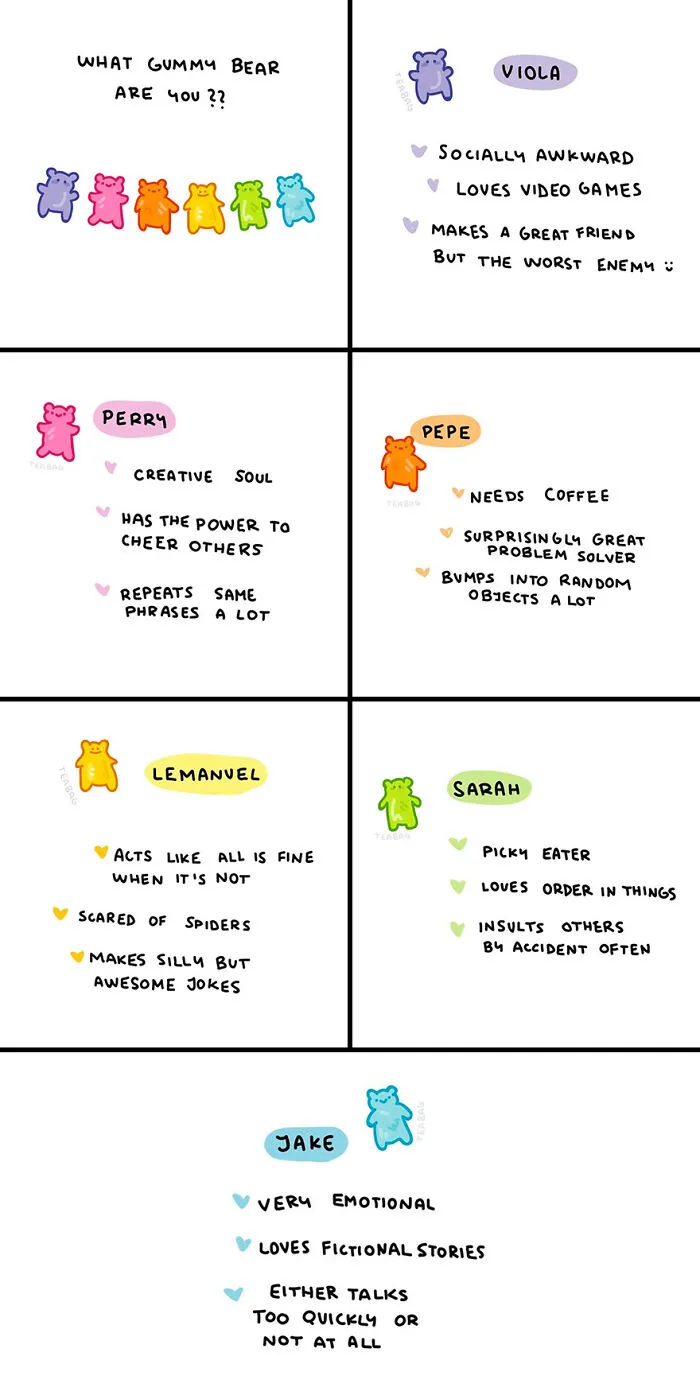 WHAT GUMMY BEAR
ARE YOU??
TEABAG
VIOLA
SOCIALLY AWKWARD
LOVES VIDEO GAMES
MAKES A GREAT FRIEND
BUT THE WORST ENEMY :)
PERRY
TEABAG
CREATIVE SOUL
HAS THE POWER TO
CHEER OTHERS
REPEATS SAME
PHRASES A LOT
PEPE
TEABAG
NEEDS COFFEE
SURPRISINGLY GREAT
PROBLEM SOLVER
BUMPS INTO RANDOM
OBJECTS A LOT
TEABAG
LEMANUEL
ACTS LIKE ALL IS FINE
WHEN IT'S NOT
SCARED OF SPIDERS
MAKES SILLY BUT
AWESOME JOKES
SARAH
TEABAG
PICKY EATER
LOVES ORDER IN THINGS
INSULTS OTHERS
BY ACCIDENT OFTEN
JAKE
TEABAG
VERY EMOTIONAL
LOVES FICTIONAL STORIES
EITHER TALKS
TOO QUICKLY OR
NOT AT ALL